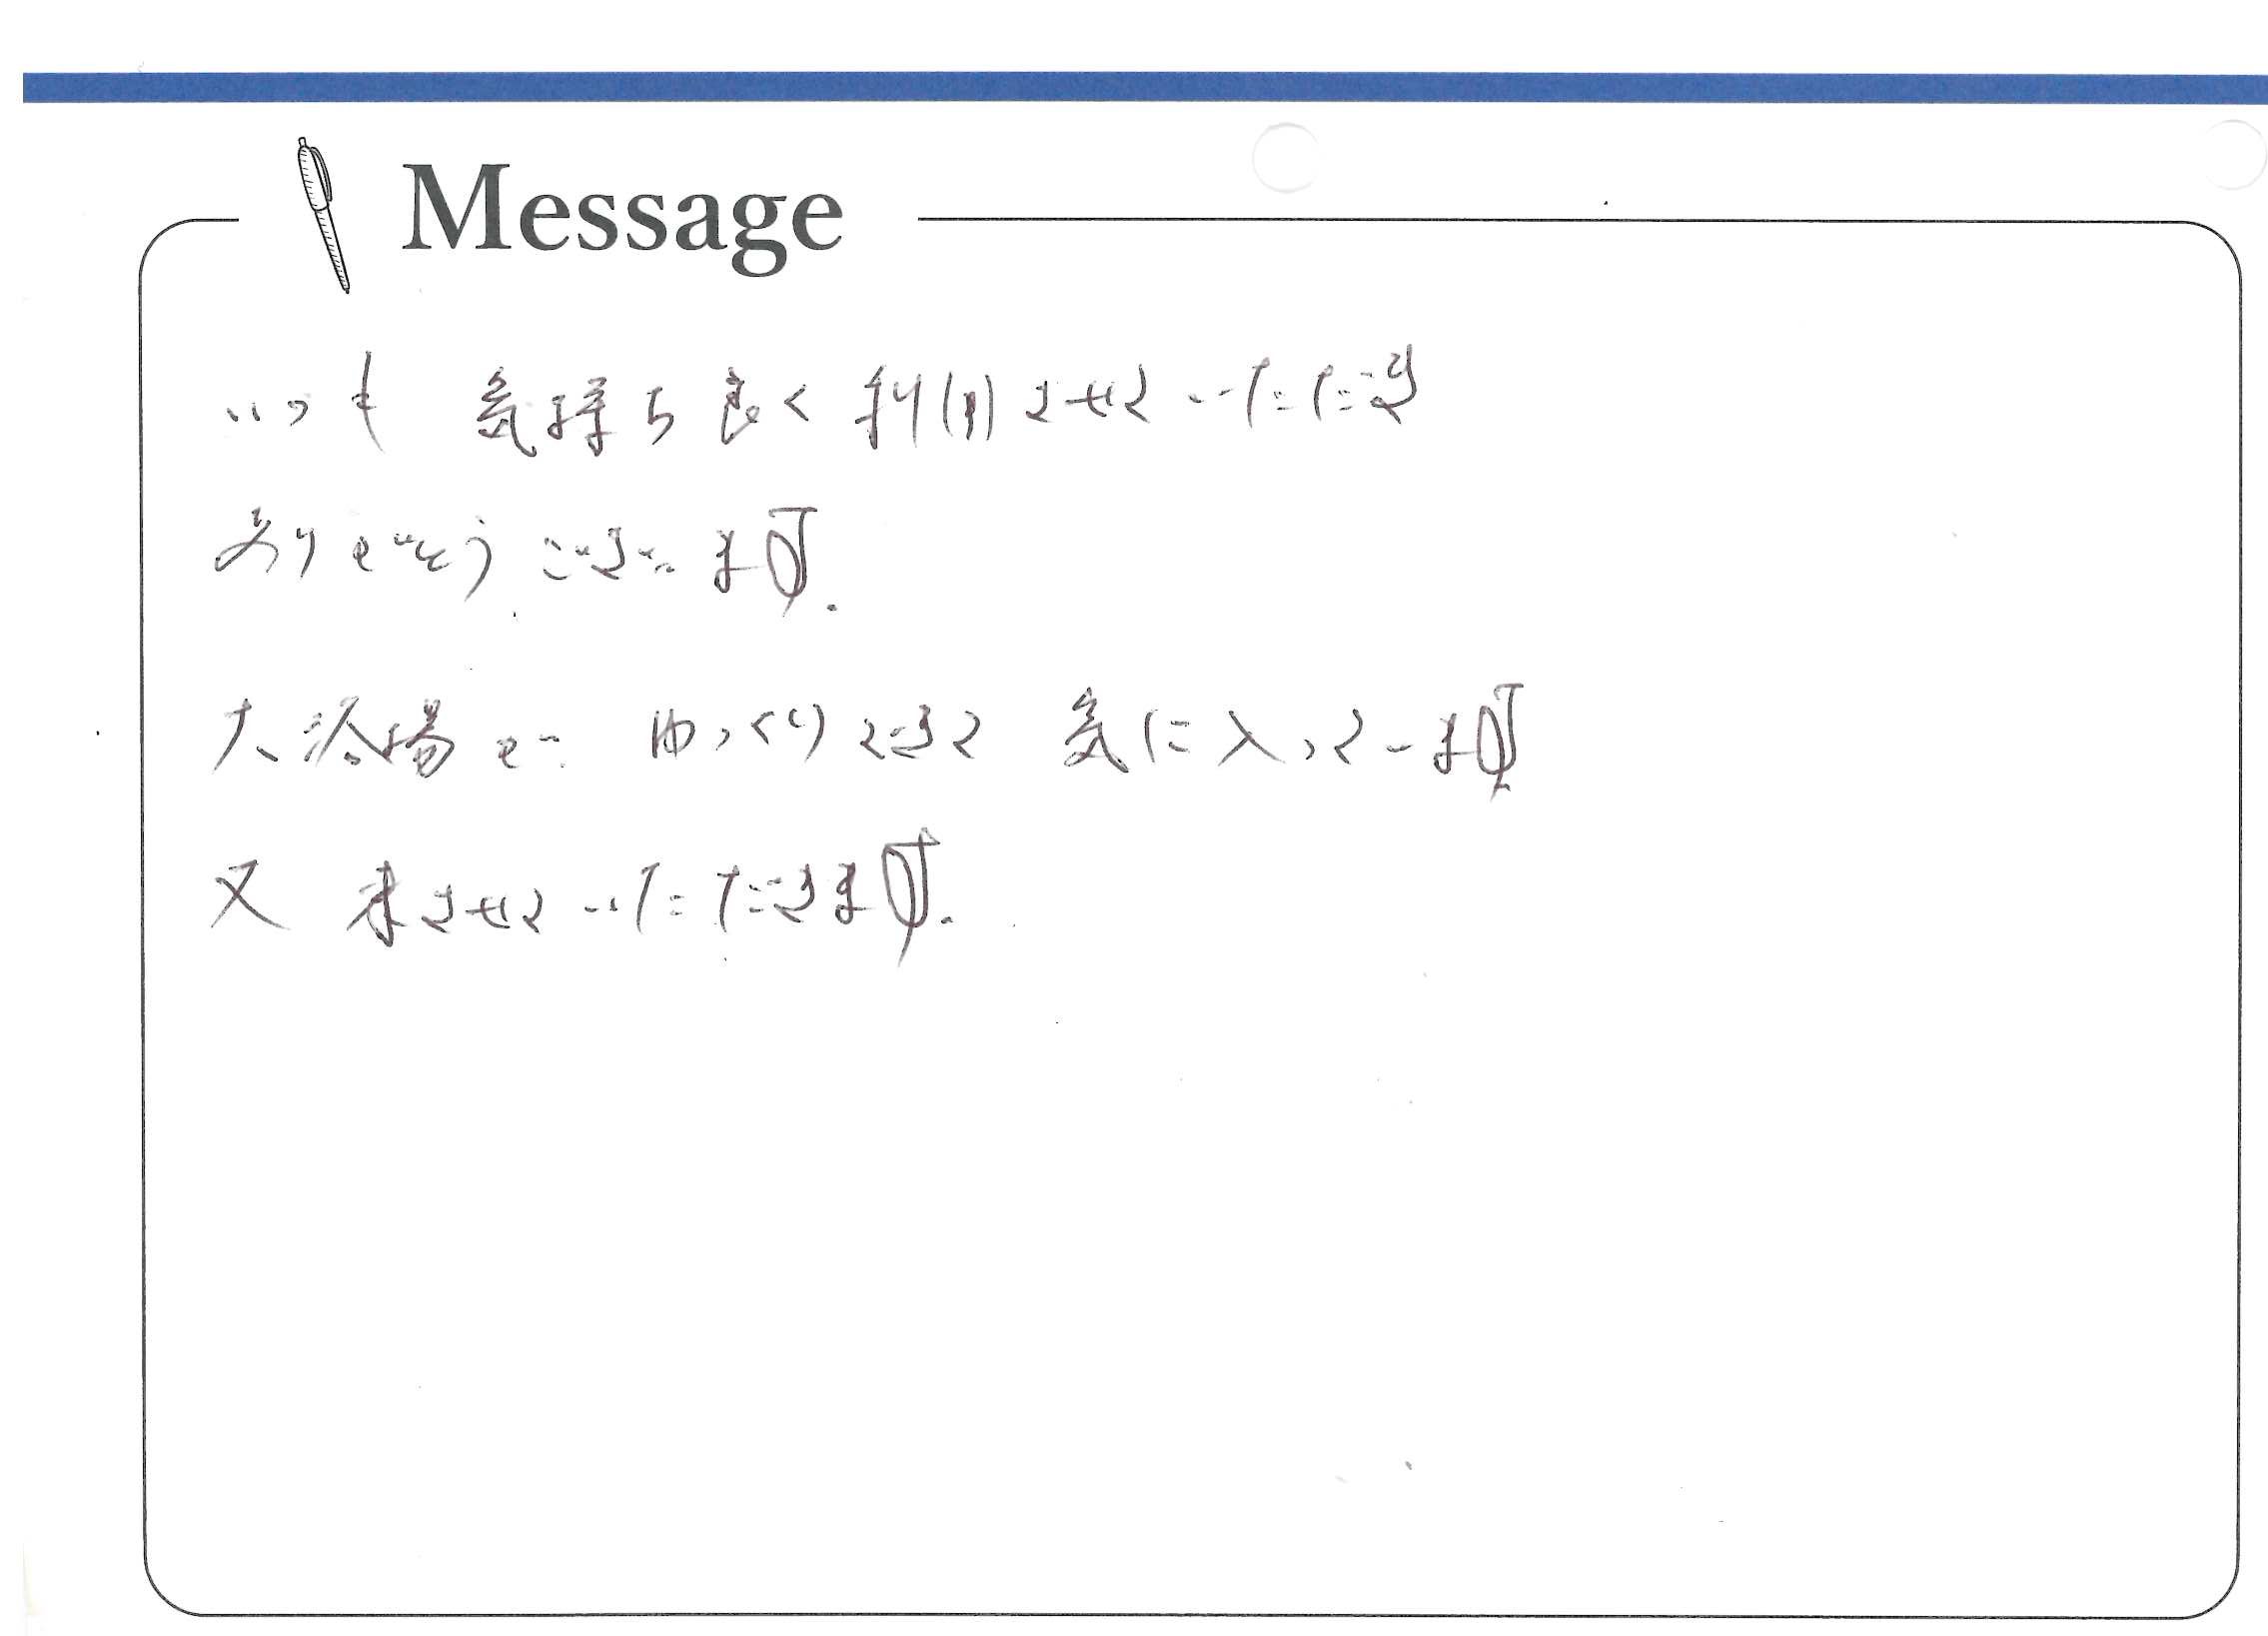 Message
いつも 気持ち良く利用させていただき
ありがとうございます.
大浴場で ゆっくりできて 気に入っています
又 来させていただきます.